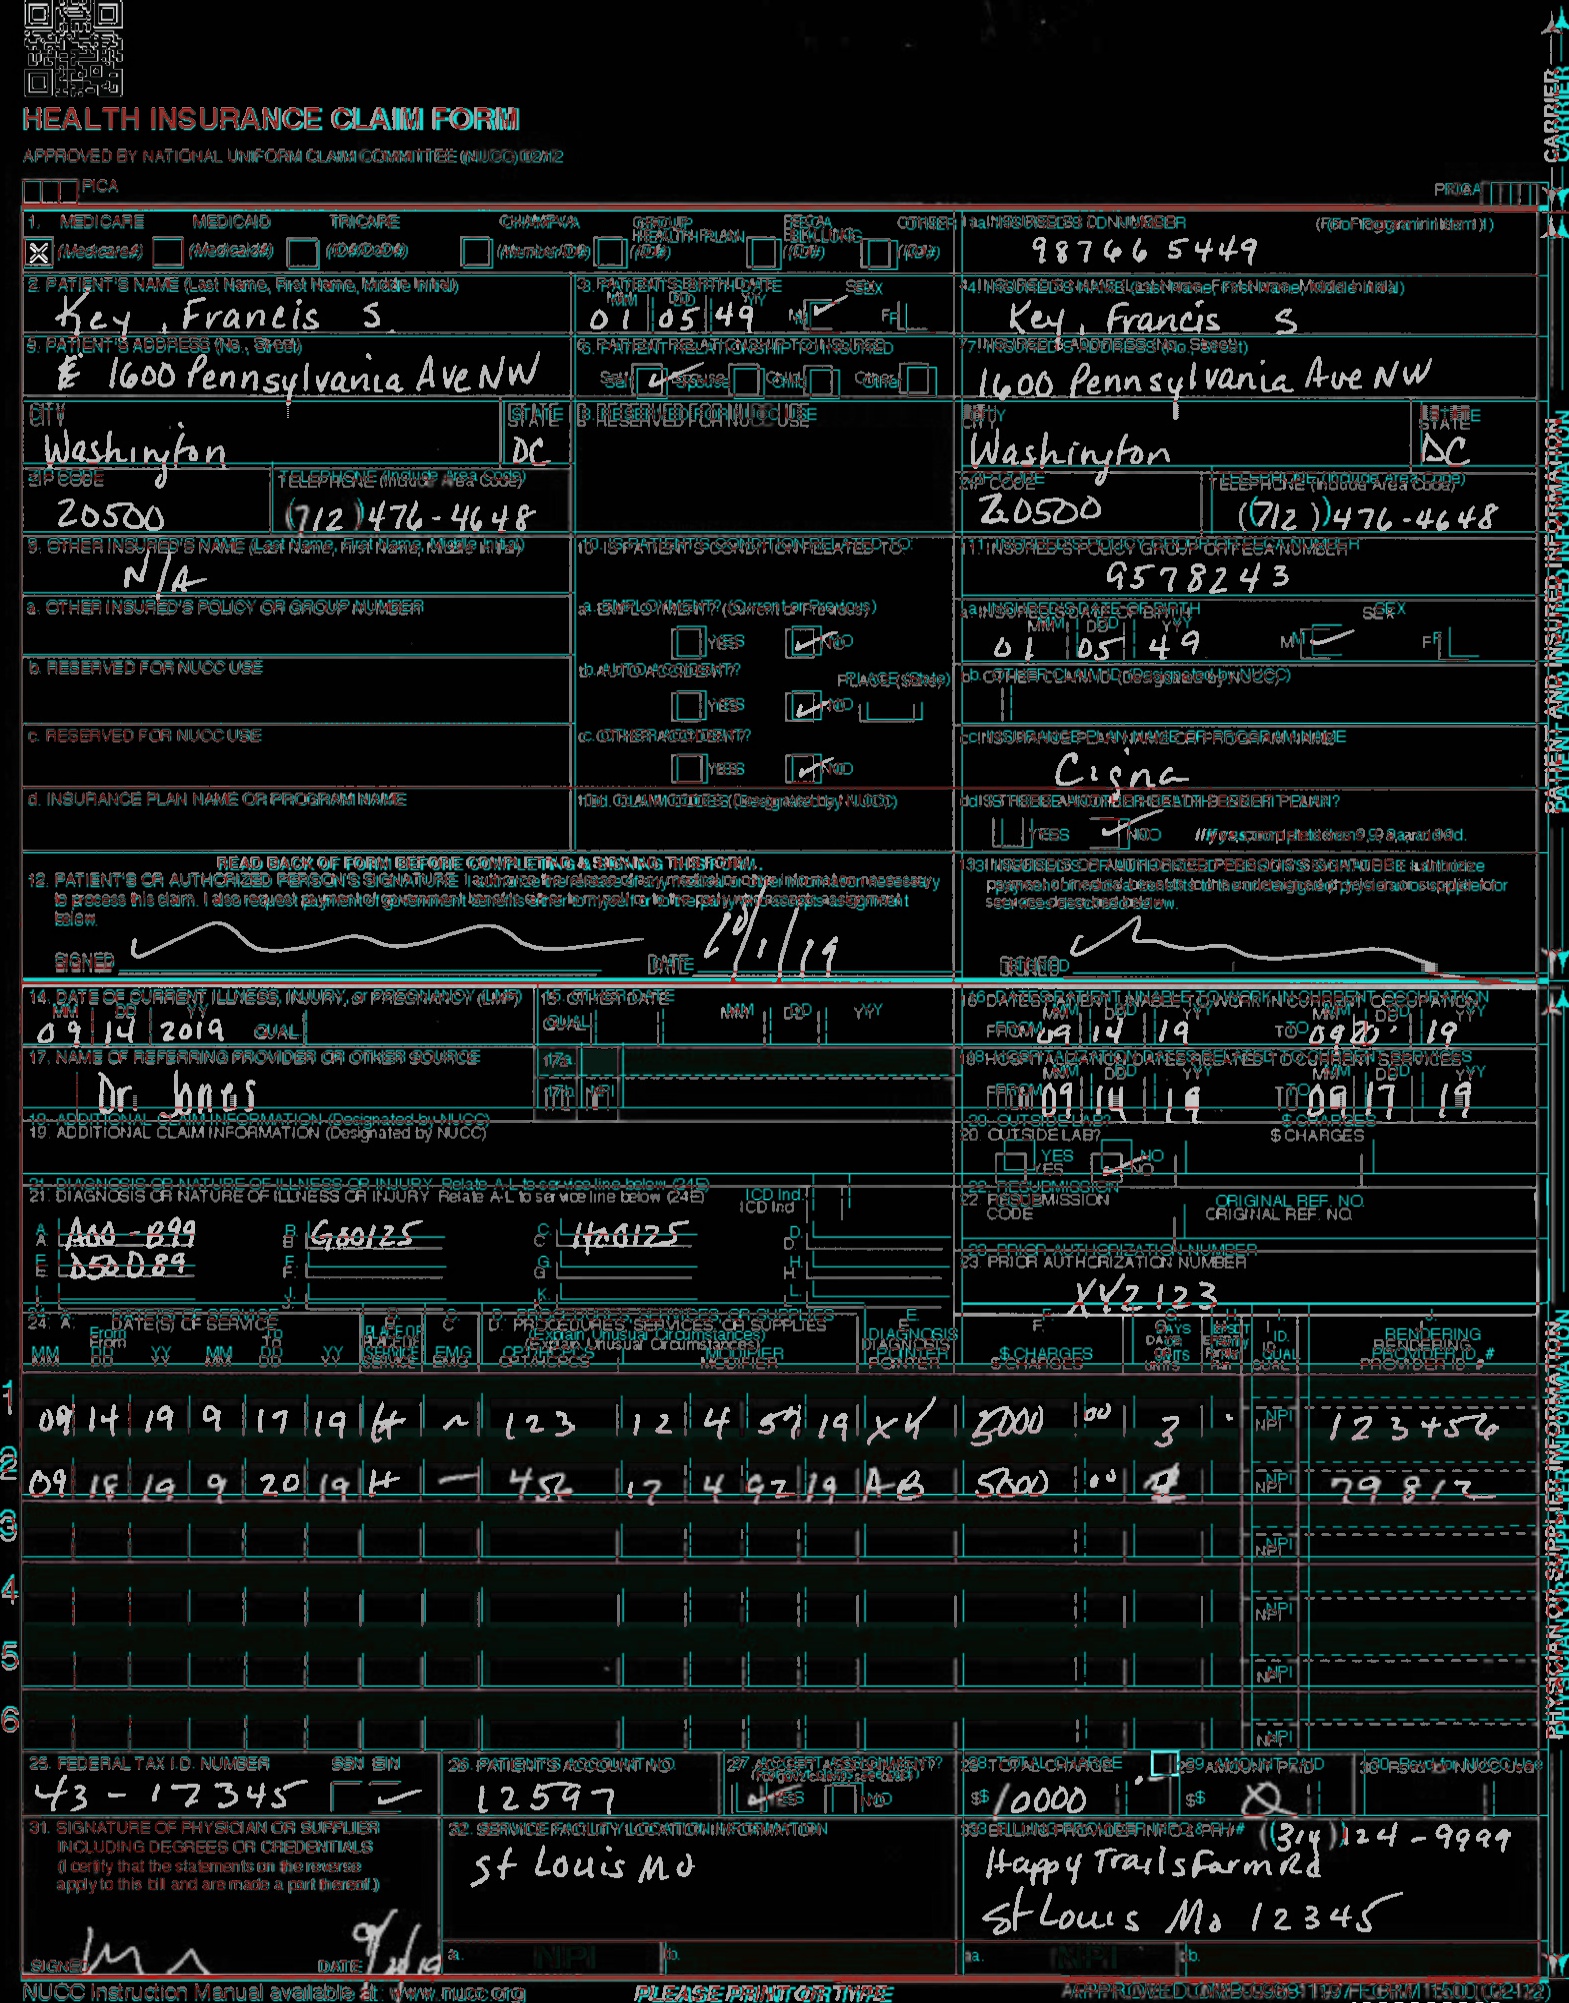 HEALTH INSURANCE CLAIM FORM
APPROVED BY NATIONAL UNIFORM CLAIM COMMITTEE (NUCC) 02/12
PICA
PICA
CARRIER
1. MEDICARE MEDICAID TRICARE CHAMPVA GROUP HEALTH PLAN FECA BLK LUNG OTHER
(Medicare#) (Medicaid#) (ID#/DoD#) (Member ID#) (ID#) (ID#) (ID#)
1a. INSURED'S I.D. NUMBER (For Program in Item 1)
98766 5449
2. PATIENT'S NAME (Last Name, First Name, Middle Initial)
Key, Francis S.
3. PATIENT'S BIRTH DATE SEX
MM DD YY
01 05 49 M F
4. INSURED'S NAME (Last Name, First Name, Middle Initial)
Key, Francis S
5. PATIENT'S ADDRESS (No., Street)
1600 Pennsylvania Ave NW
6. PATIENT RELATIONSHIP TO INSURED
Self Spouse Child Other
7. INSURED'S ADDRESS (No., Street)
1600 Pennsylvania Ave NW
CITY STATE
Washington DC
8. RESERVED FOR NUCC USE
CITY STATE
Washington DC
ZIP CODE TELEPHONE (Include Area Code)
20500 (712) 476-4648
ZIP CODE TELEPHONE (Include Area Code)
20500 (712) 476-4648
9. OTHER INSURED'S NAME (Last Name, First Name, Middle Initial)
N/A
10. IS PATIENT'S CONDITION RELATED TO:
11. INSURED'S POLICY GROUP OR FECA NUMBER
9578243
a. OTHER INSURED'S POLICY OR GROUP NUMBER
a. EMPLOYMENT? (Current or Previous)
YES NO
a. INSURED'S DATE OF BIRTH SEX
MM DD YY
01 05 49 M F
b. RESERVED FOR NUCC USE
b. AUTO ACCIDENT? PLACE (State)
YES NO
b. OTHER CLAIM ID (Designated by NUCC)
c. RESERVED FOR NUCC USE
c. OTHER ACCIDENT?
YES NO
c. INSURANCE PLAN NAME OR PROGRAM NAME
Cigna
d. INSURANCE PLAN NAME OR PROGRAM NAME
10d. CLAIM CODES (Designated by NUCC)
d. IS THERE ANOTHER HEALTH BENEFIT PLAN?
YES NO If yes, complete items 9, 9a, and 9d.
READ BACK OF FORM BEFORE COMPLETING & SIGNING THIS FORM.
12. PATIENT'S OR AUTHORIZED PERSON'S SIGNATURE I authorize the release of any medical or other information necessary
to process this claim. I also request payment of government benefits either to myself or to the party who accepts assignment
below.
SIGNED DATE 10/1/19
13. INSURED'S OR AUTHORIZED PERSON'S SIGNATURE I authorize
payment of medical benefits to the undersigned physician or supplier for
services described below.
SIGNED
PATIENT AND INSURED INFORMATION
14. DATE OF CURRENT ILLNESS, INJURY, or PREGNANCY (LMP)
MM DD YY
09 14 2019 QUAL
15. OTHER DATE
QUAL MM DD YY
16. DATES PATIENT UNABLE TO WORK IN CURRENT OCCUPATION
MM DD YY MM DD YY
FROM 09 14 19 TO 09 20 19
17. NAME OF REFERRING PROVIDER OR OTHER SOURCE
Dr. Jones
17a
17b NPI
18. HOSPITALIZATION DATES RELATED TO CURRENT SERVICES
MM DD YY MM DD YY
FROM 09 14 19 TO 09 17 19
19. ADDITIONAL CLAIM INFORMATION (Designated by NUCC)
20. OUTSIDE LAB? $ CHARGES
YES NO
21. DIAGNOSIS OR NATURE OF ILLNESS OR INJURY Relate A-L to service line below (24E) ICD Ind.
A. A00-B99 B. G80125 C. H00125 D.
E. D50D89 F. G. H.
I. J. K. L.
22. RESUBMISSION CODE ORIGINAL REF. NO.
23. PRIOR AUTHORIZATION NUMBER
XYZ123
24. A. DATE(S) OF SERVICE B. C. D. PROCEDURES, SERVICES, OR SUPPLIES E. F.
From To PLACE OF SERVICE EMG (Explain Unusual Circumstances) DIAGNOSIS POINTER $ CHARGES DAYS OR UNITS ID. QUAL. RENDERING PROVIDER ID. #
MM DD YY MM DD YY CPT/HCPCS MODIFIER
1 09 14 19 9 17 19 H ~ 123 12 4 57 19 XX 5000 00 3 NPI 123456
2 09 18 19 9 20 19 H — 456 12 4 92 19 AB 5000 00 NPI 79812
3 NPI
4 NPI
5 NPI
6 NPI
25. FEDERAL TAX I.D. NUMBER SSN EIN
43-12345
26. PATIENT'S ACCOUNT NO.
12597
27. ACCEPT ASSIGNMENT?
(For govt. claims, see back)
YES NO
28. TOTAL CHARGE
$ 10000
29. AMOUNT PAID
$ 0
30. Rsvd for NUCC Use
31. SIGNATURE OF PHYSICIAN OR SUPPLIER
INCLUDING DEGREES OR CREDENTIALS
(I certify that the statements on the reverse
apply to this bill and are made a part thereof.)
SIGNED DATE
32. SERVICE FACILITY LOCATION INFORMATION
St Louis Mo
a. NPI b.
33. BILLING PROVIDER INFO & PH # (314) 124-9999
Happy Trails Farm Rd
St Louis Mo 12345
a. NPI b.
PHYSICIAN OR SUPPLIER INFORMATION
NUCC Instruction Manual available at: www.nucc.org
PLEASE PRINT OR TYPE
APPROVED OMB-0938-1197 FORM 1500 (02-12)